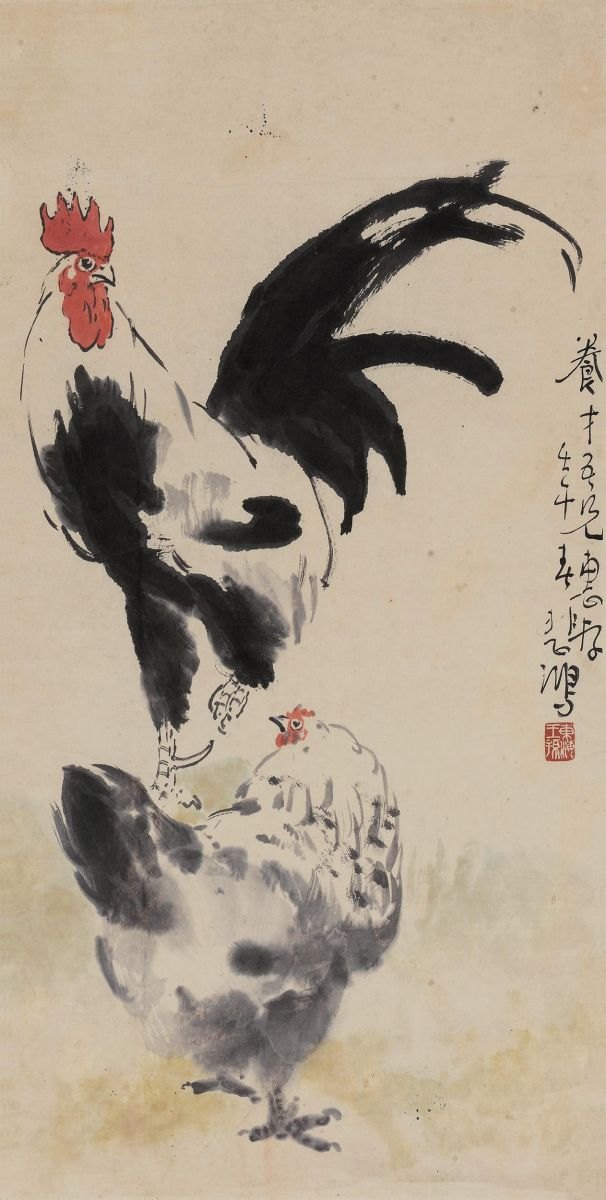 養才吾兄惠存
壬午春悲鴻
東海
王孫